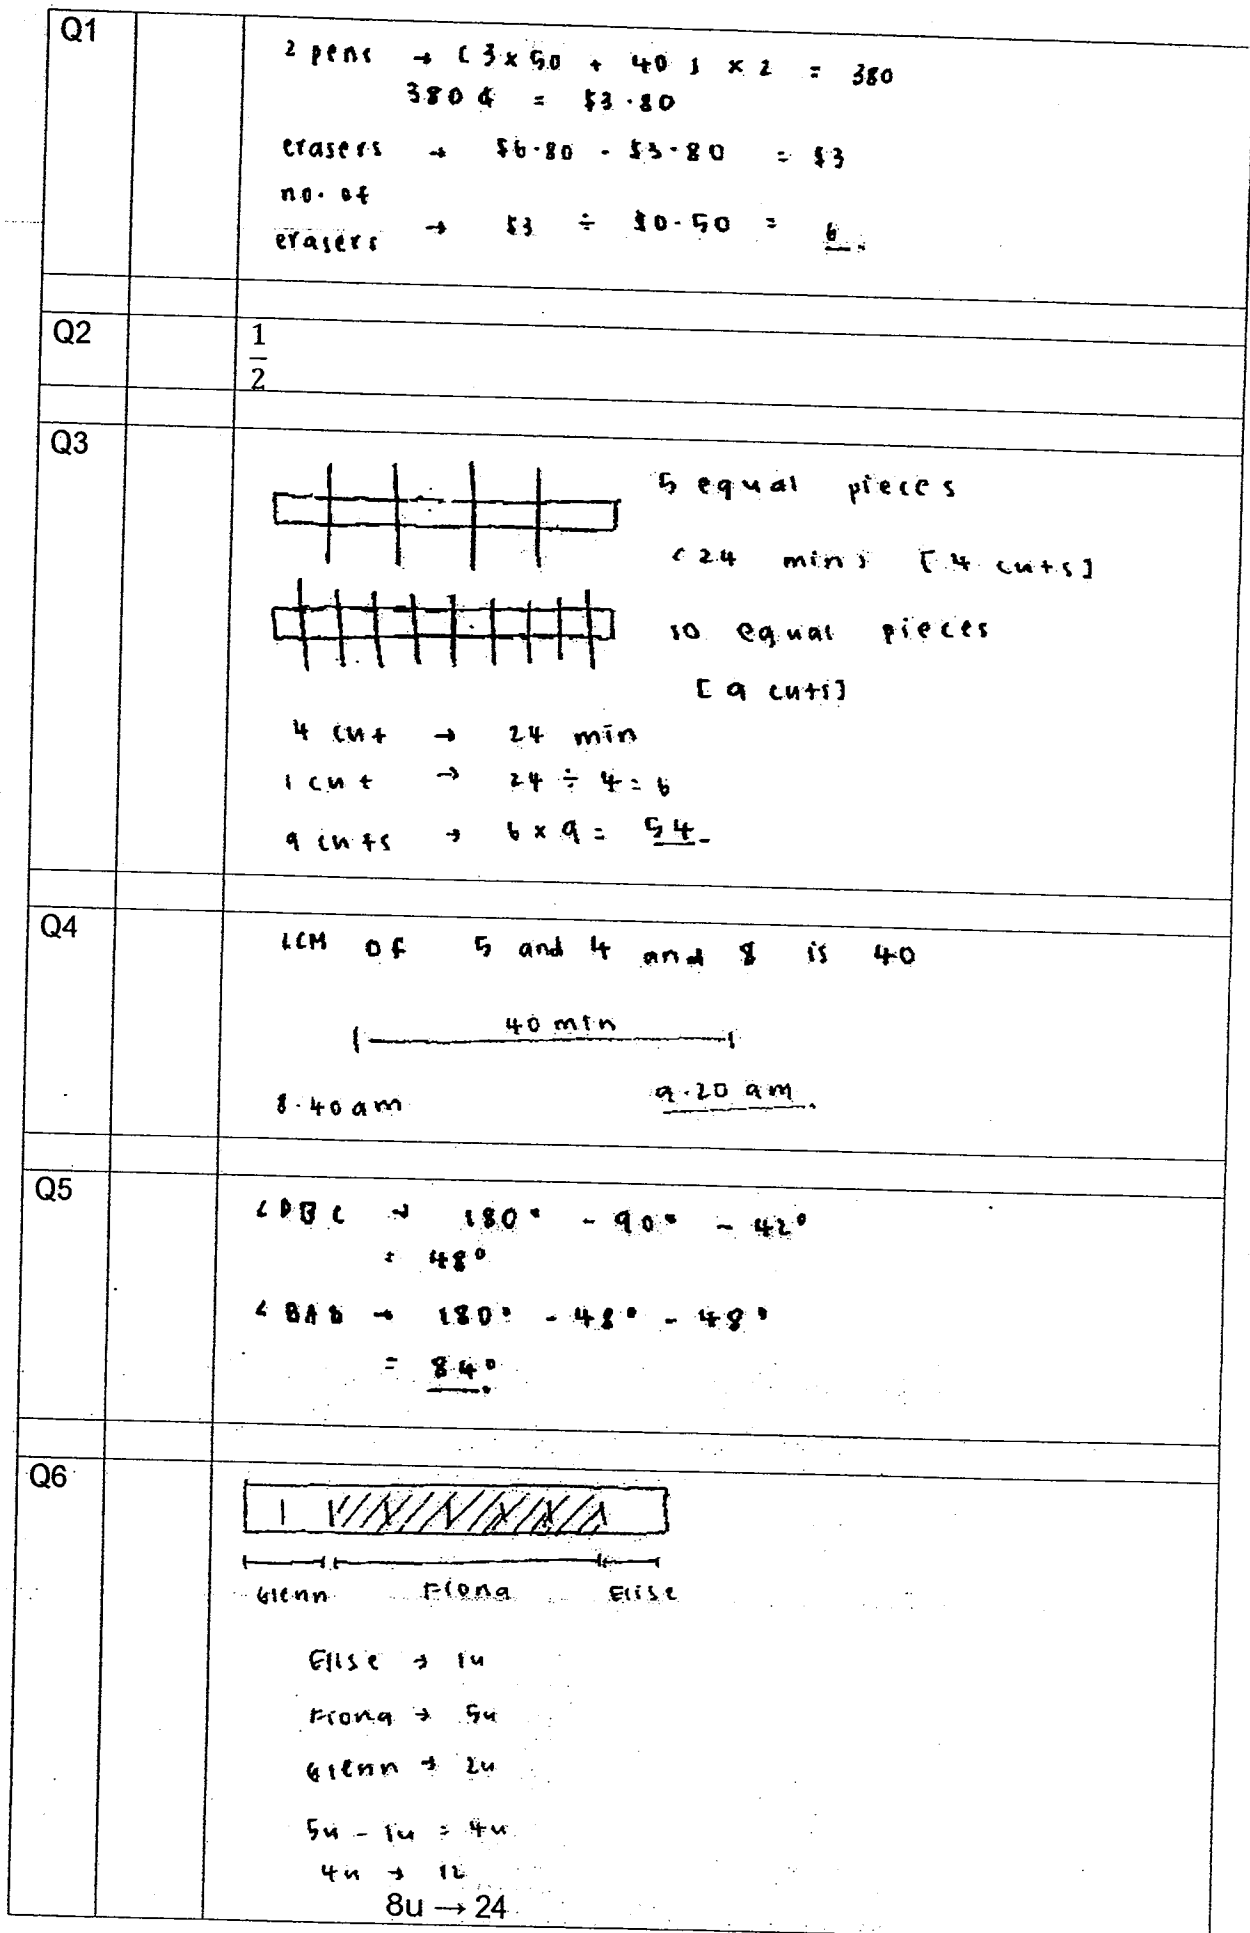 Q1
2 pens → (3 x 50 + 40) x 2 = 380
380¢ = $3.80
erasers → $6.80 - $3.80 = $3
no. of
erasers → $3 ÷ $0.50 = 6
Q2
1
2
Q3
5 equal pieces
(24 min) [4 cuts]
10 equal pieces
[9 cuts]
4 cut → 24 min
1 cut → 24 ÷ 4 = 6
9 cuts → 6 x 9 = 54
Q4
LCM of 5 and 4 and 8 is 40
40 min
8.40 am 9.20 am
Q5
∠DBC → 180° - 90° - 42°
= 48°
∠BAD → 180° - 48° - 48°
= 84°
Q6
Glenn Fiona Elise
Elise → 1u
Fiona → 5u
Glenn → 2u
5u - 1u = 4u
4u → 12
8u → 24